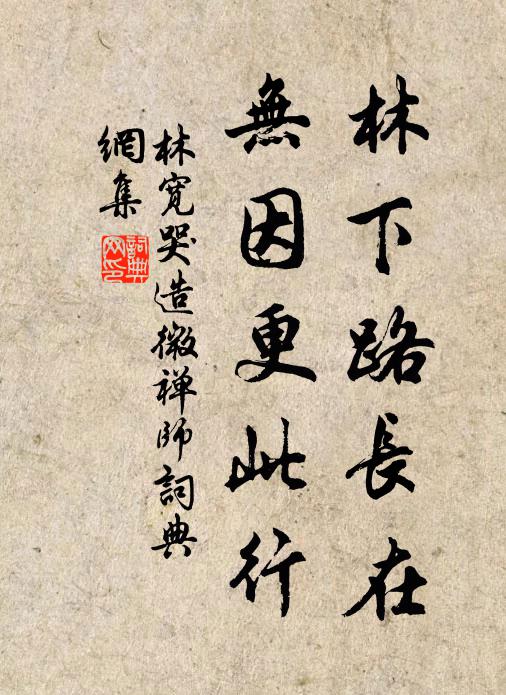 林下路長在
無因更此行
林寬哭造微禅師詞典
網集
詞典
网印